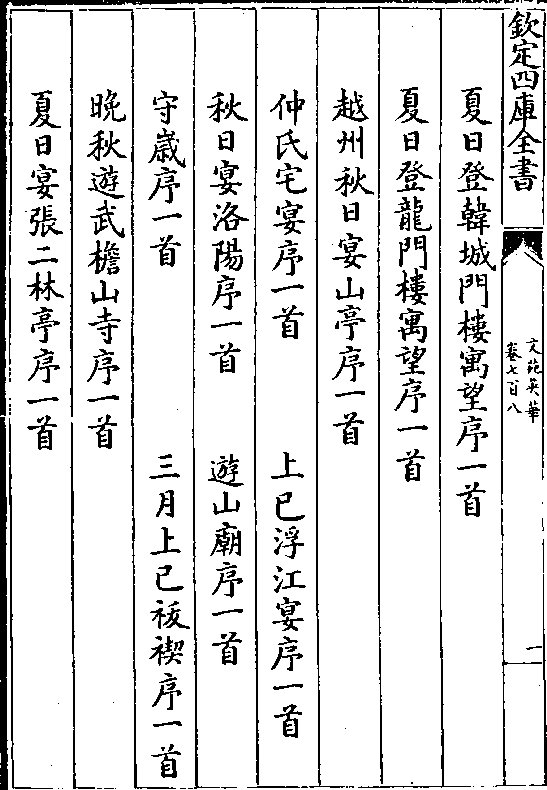 欽定四庫全書
文苑英華
卷七百八
一
夏日登韓城門樓寓望序一首
夏日登龍門樓寓望序一首
越州秋日宴山亭序一首
仲氏宅宴序一首 上巳浮江宴序一首
秋日宴洛陽序一首 遊山廟序一首
守歲序一首 三月上巳祓禊序一首
晚秋遊武檐山寺序一首
夏日宴張二林亭序一首